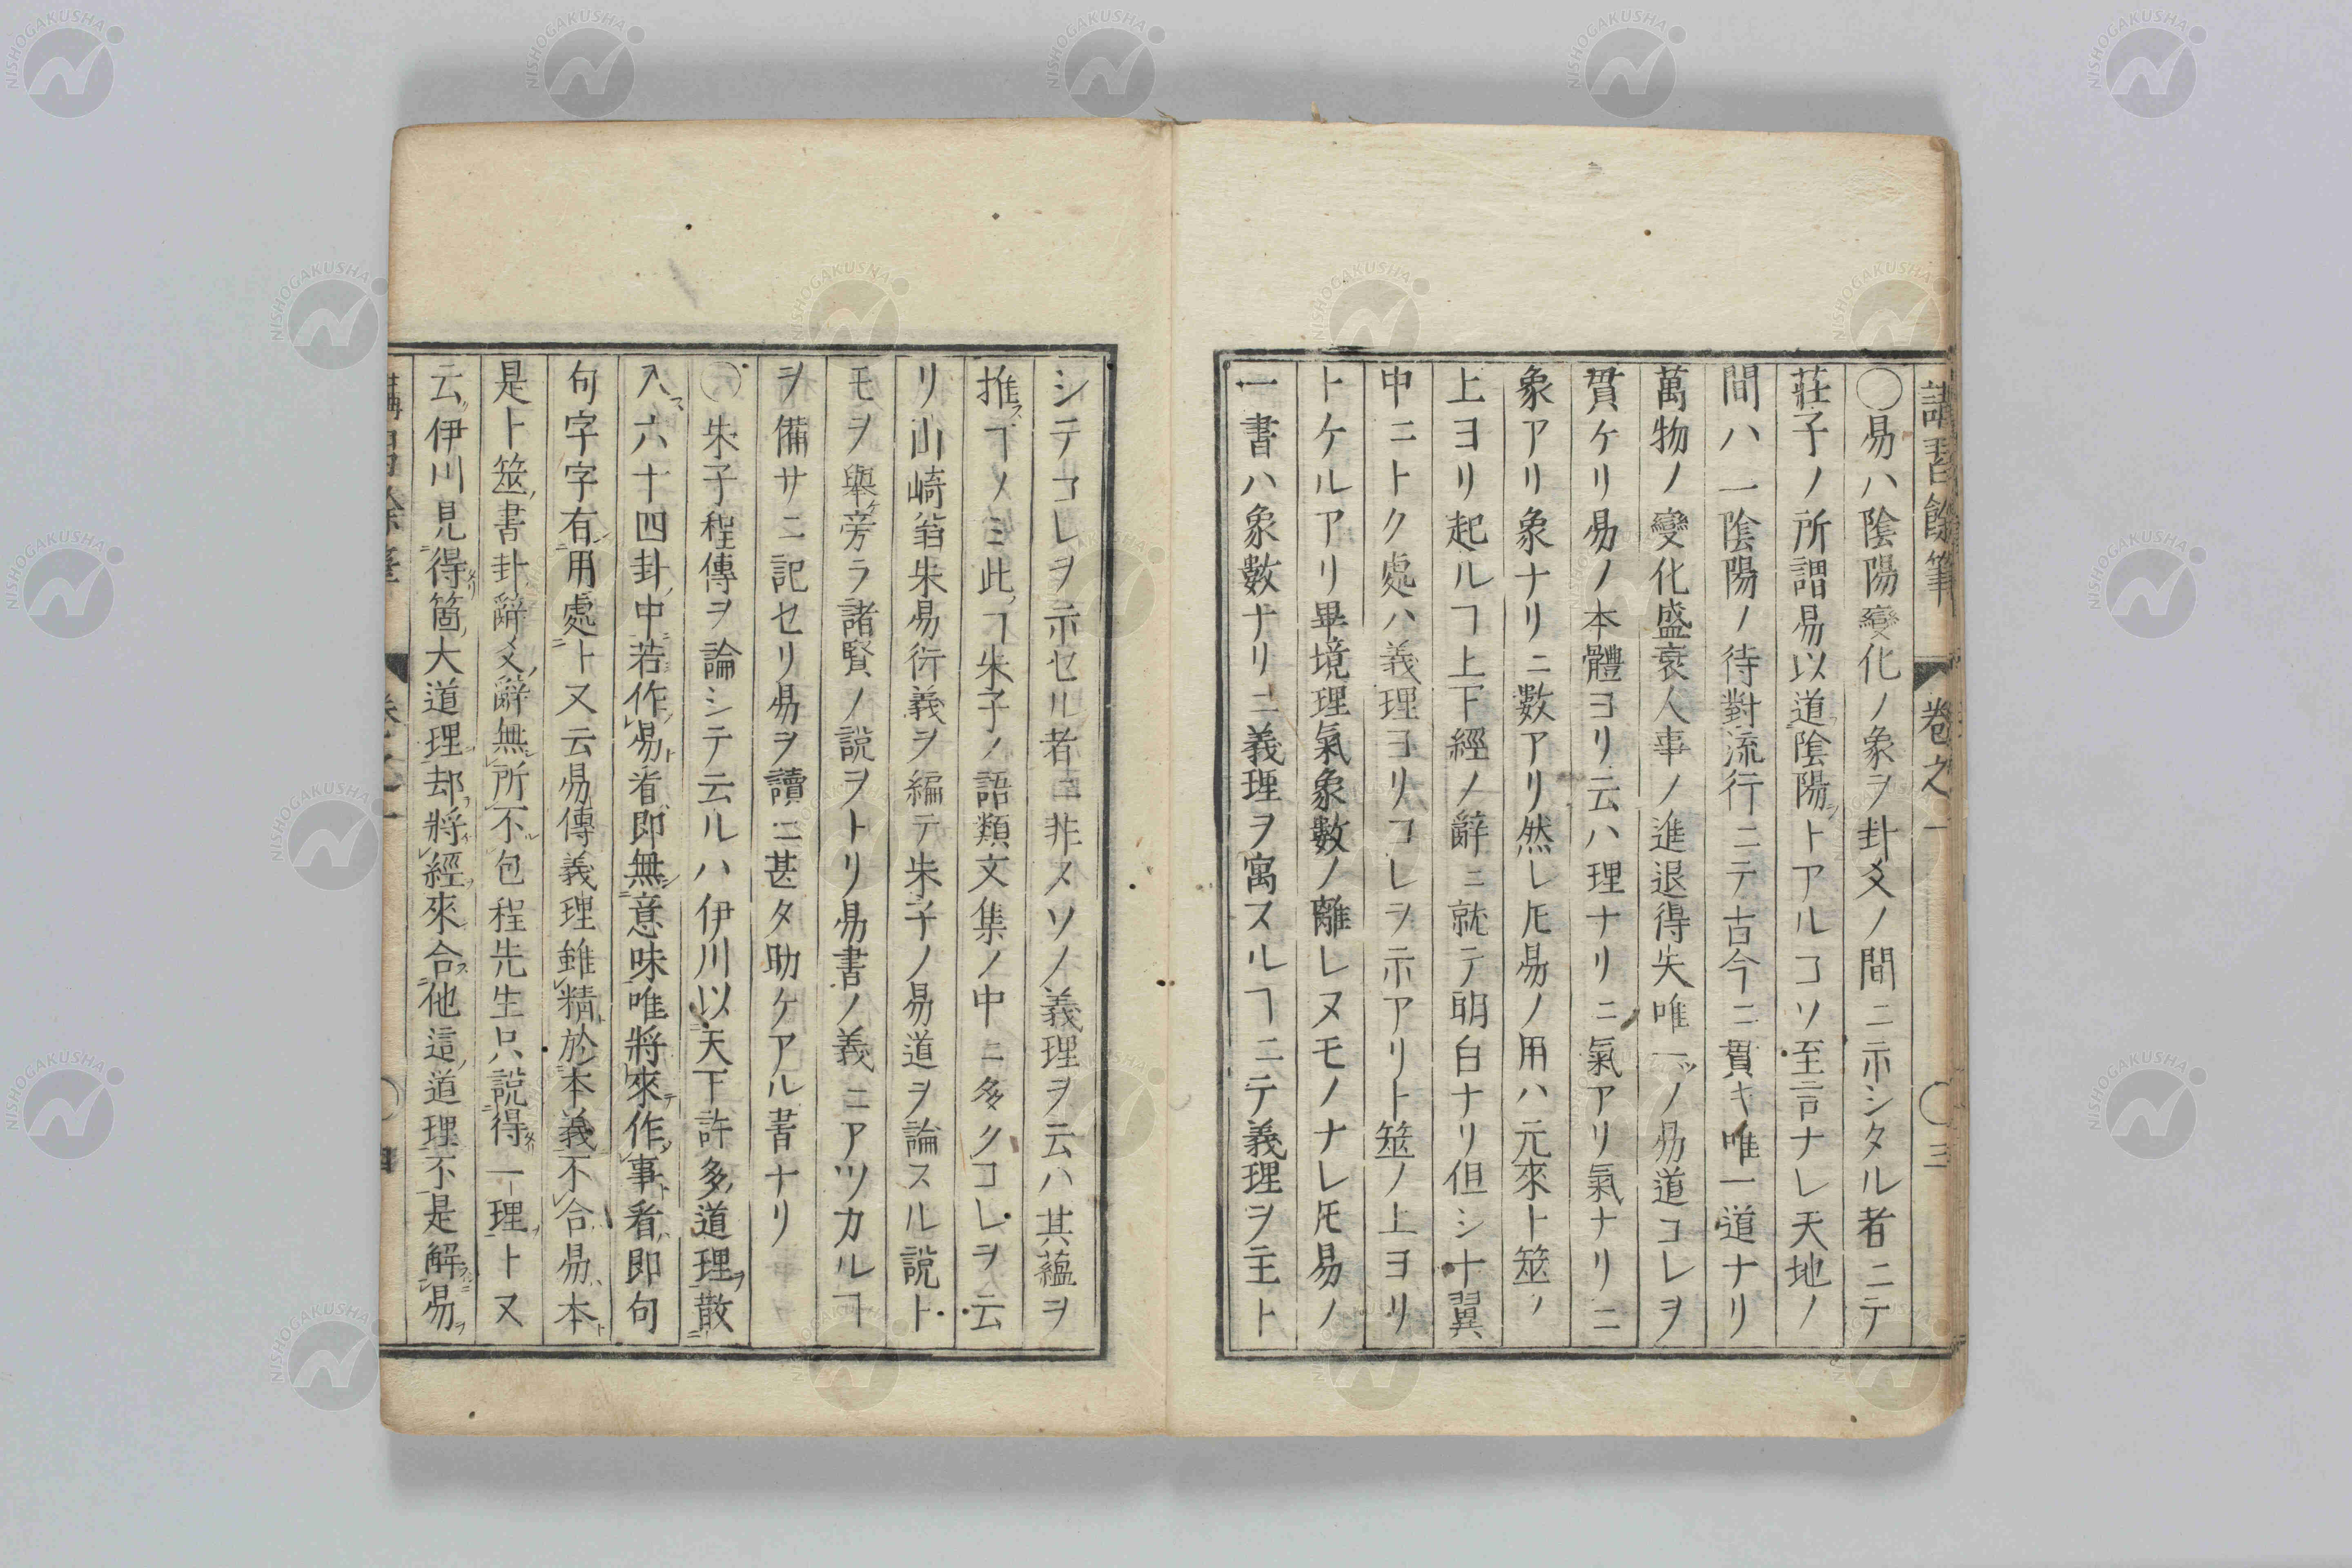 講習餘筆 卷之一 〇三
〇易ハ陰陽變化ノ象ヲ卦爻ノ間ニ示シタル者ニテ
莊子ノ所謂易以道陰陽トアルコソ至言ナレ天地ノ
間ハ一陰陽ノ待對流行ニテ古今ニ貫キ唯一道ナリ
萬物ノ變化盛衰人事ノ進退得失唯一ツノ易道コレヲ
貫ケリ易ノ本體ヨリ云ハ理ナリニ氣アリ氣ナリニ
象アリ象ナリニ數アリ然レ𪜈易ノ用ハ元來卜筮ノ
上ヨリ起ルヿ上下經ノ辭ニ就テ明白ナリ但シ十翼
中ニトク處ハ義理ヨリコレヲ示アリト筮ノ上ヨリ
トケルアリ畢境理氣象數ノ離レヌモノナレ𪜈易ノ
一書ハ象數ナリニ義理ヲ寓スルヿニテ義理ヲ主ト
シテコレヲ示セル者ニ非スソノ義理ヲ云ハ其蘊ヲ
推スヿノミ此ヿ朱子ノ語類文集ノ中ニ多クコレヲ云
リ山崎翁朱易衍義ヲ編テ朱子ノ易道ヲ論スル說ト
モヲ舉ケ旁ラ諸賢ノ說ヲトリ易書ノ義ニアツカルヿ
ヲ備サニ記セリ易ヲ讀ニ甚タ助ケアル書ナリ
〇朱子程傳ヲ論シテ云ルハ伊川以天下許多道理ヲ散
入ス六十四卦ノ中若作易看即無意味唯將來作事看即句
句字字有用處ト又云易傳義理雖精於本義不合易本
是卜筮書卦辭爻辭無所不包程先生只說得一理ト又
云伊川見得箇大道理却將經來合他這道理不是解易